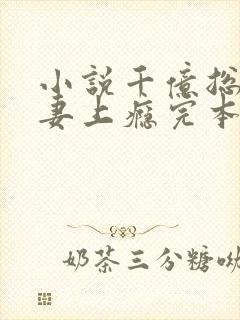 小說千億総
妻上癮完本
奶茶三分糖呦